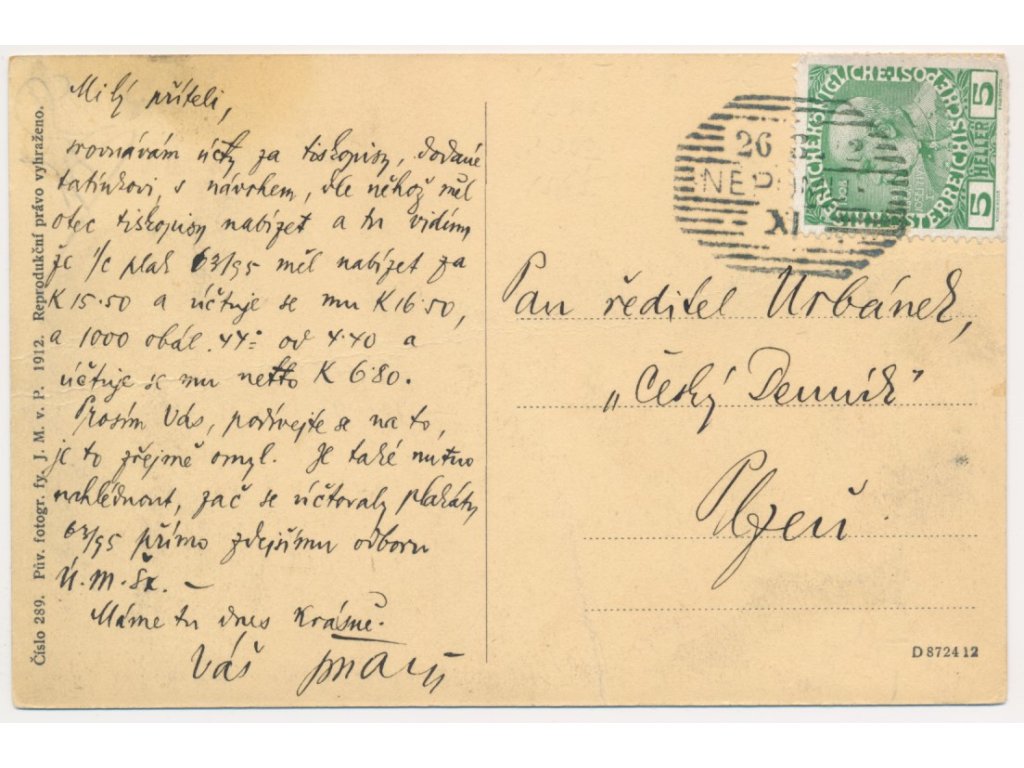 Milý příteli,
srovnávám účty za tiskopisy, dodané
tatínkovi, s návrhem, dle něhož měl
otec tiskopisy nabízet a tu vidím
že 1/c plak 63/95 měl nabízet za
K 15.50 a účtuje se mu K 16.50,
a 1000 obál. 44- od 4.40 a
účtuje se mu netto K 6.80.
Prosím Vás, podívejte se na to,
je to zřejmě omyl. Je také nutno
nahlédnout, zač se účtovaly plakáty
63/95 přímo zdejšímu odboru
Ú. M. Šk. –
Máme tu dnes krásně.
Váš
Číslo 289. Pův. fotogr. fy. J. M. v P. 1912. Reprodukční právo vyhraženo.
26
XI
5 HELLER 5
Pan ředitel Urbánek,
„Český Denník"
Plzeň
D 8724 12